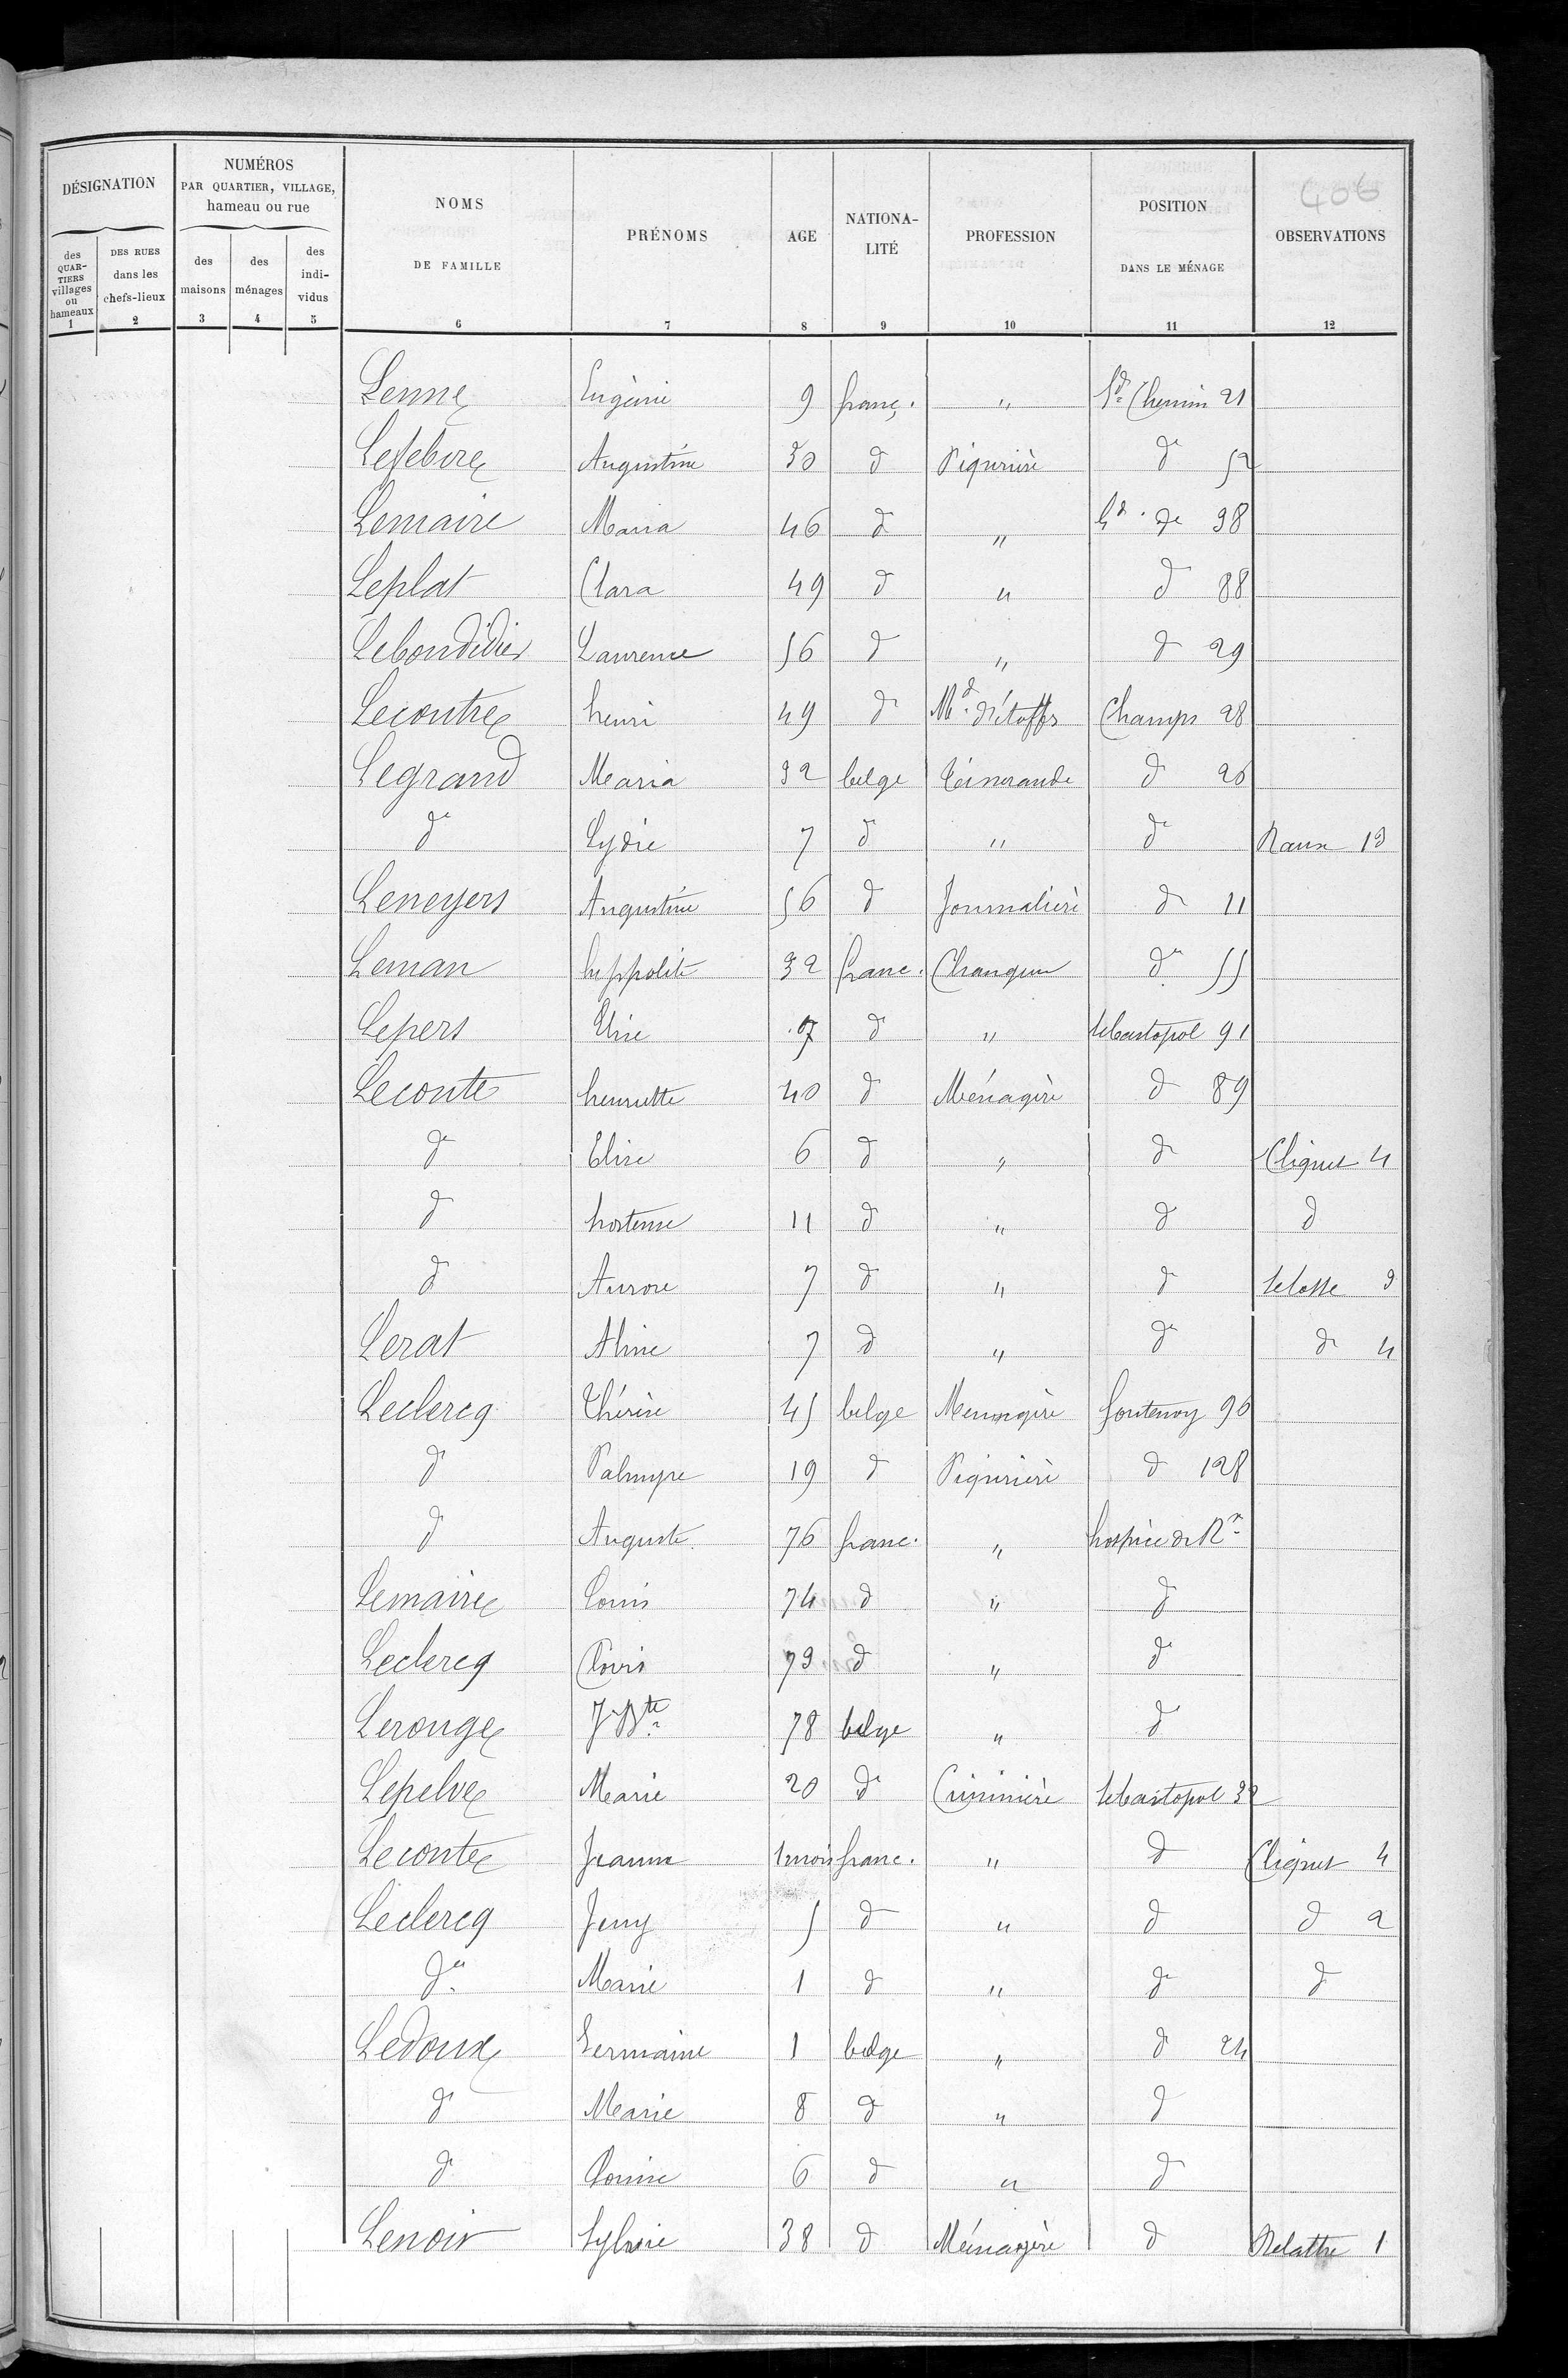 406
DÉSIGNATION
des QUARTIERS villages ou hameaux 1
DES RUES dans les chefs-lieux 2
NUMÉROS PAR QUARTIER, VILLAGE, hameau ou rue
des maisons 3
des ménages 4
des individus 5
NOMS DE FAMILLE 6
PRÉNOMS 7
AGE 8
NATIONALITÉ 9
PROFESSION 10
POSITION DANS LE MÉNAGE 11
OBSERVATIONS 12
Lenne Eugènie 9 franç. " Gd Chemin 21
Lefebvre Augustine 30 d Piqurière d 52
Lemaire Maria 46 d " Gd. de 38
Leplat Clara 49 d " d 88
Lebondidier Laurence 56 d " d 29
Lecontre henri 49 d Md. d'étoffes Champs 28
Legrand Maria 32 belge d 26
d Lydie 7 d " d Raux 13
Leneyers Augustine 56 d Journalière d 11
Leman hyppolite 32 franc. d 55
Lepers Elise 7 d " sebastopol 91
Leconte henriette 40 d Ménagère d 89
d Elise 6 d " d Clignet 4
d hortense 11 d " d d
d Aurore 7 d " d 3
Lerat Aline 7 d " d d 4
Leclercq Thérèse 45 belge Menagère fontenoy 96
d Palmyre 19 d Piqurière d 128
d Auguste 76 franc. " hospice de Rx
Lemaire Louis 74 d " d
Leclercq Clovis 73 d " d
Lerouge J Bte 78 belge " d
Lepelve Marie 20 d Cuisinière sebastopol 32
Leconte Jeanne 1 mois franc. " d Clignet 4
Leclercq Jeny 5 d " d d 2
d Marie 1 d " d d
Ledoux Germaine 1 belge " d 24
d Marie 8 d " d
d 6 d " d
Lenoir Sylvie 38 d Ménagère d Delattre 1